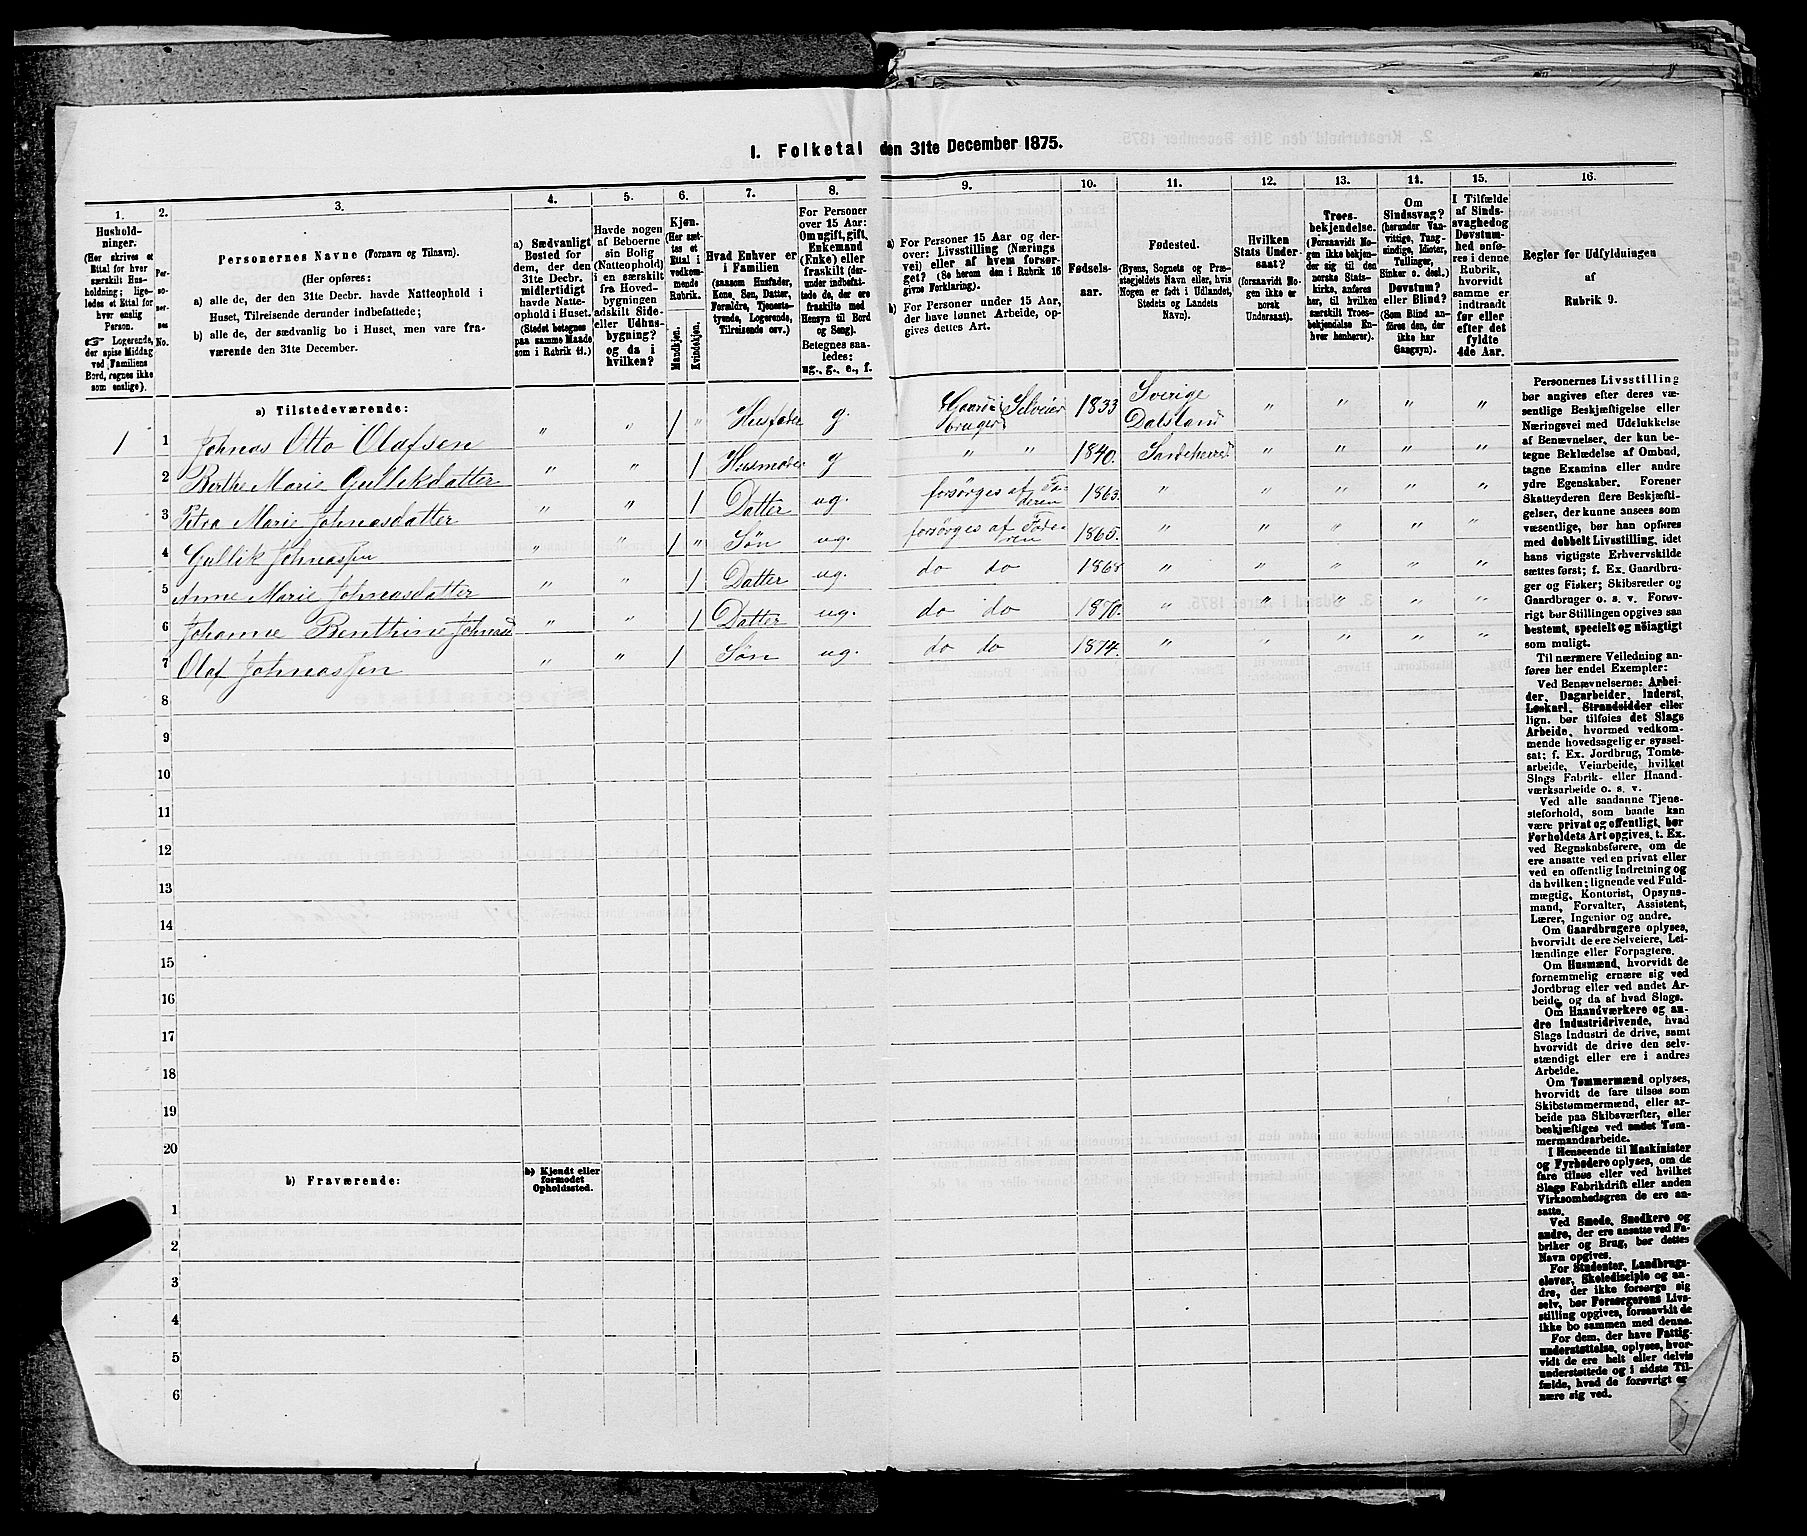 I. Folketal den 31te December 1875.
1.
Husholdninger.
(Her skrives et
Ettal for hver
særskilt Husholdning;
ligeledes et Ettal for
hver enslig
Person.
☞ Logerende,
der spise Middag
ved Familiens
Bord, regnes ikke
som enslige).
2.
Personernes
No.
3.
Personernes Navne (Fornavn og Tilnavn).
(Her opføres:
a) alle de, der den 31te Decbr. havde Natteophold i
Huset, Tilreisende derunder indbefattede;
b) alle de, der sædvanlig bo i Huset, men vare fraværende
den 31te December.
4.
a) Sædvanligt
Bosted for
dem, der den
31te Decbr.
midlertidigt
havde Natteophold
i Huset.
(Stedet betegnes
paa samme Maade
som i Rubrik 11.)
5.
Havde nogen
af Beboerne
sin Bolig
(Natteophold)
i en særskilt
fra Hovedbygningen
adskilt Side-
eller Udhusbygning?
og da i
hvilken?
6.
Kjøn.
(Her sættes
et
Ettal i
vedkommende
Rubrik.
Mandkjøn.
Kvindekjøn.
7.
Hvad Enhver er
i Familien
(saasom Husfader,
Kone, Søn, Datter,
Forældre, Tjenestetyende,
Logerende,
Tilreisende osv.)
8.
For Personer
over 15 Aar:
Om ugift, gift,
Enkemand
(Enke) eller
fraskilt (derunder
indbefattede
de, der ere
fraskilte med
Hensyn til Bord
og Seng).
Betegnes saaledes:
ug., g., e., f.
9.
a) For Personer 15 Aar og derover:
Livsstilling (Næringsvei)
eller af hvem forsørget?
(Se herom den i Rubrik 16
givne Forklaring.)
b) For Personer under 15 Aar,
der have lønnet Arbeide, opgives
dettes Art.
10.
Fødselsaar.
11.
Fødested.
(Byens, Sognets og Præstegjeldets
Navn eller, hvis
Nogen er født i Udlandet,
Stedets og Landets
Navn).
12.
Hvilken
Stats Undersaat?
(forsaavidt Nogen
ikke er
norsk
Undersaat).
13.
Troesbekjendelse.
(Forsaavidt Nogen
ikke bekjender
sig til den
norske Statskirke,
anføres
her, til hvilken
særskilt Troesbekjendelse
Enhver
henhører).
14.
Om
Sindssvag?
(herunder Vanvittige,
Tungsindige,
Idioter,
Tullinger,
Sinker o. desl.)
Døvstum?
eller Blind?
(Som Blind anføres
den, der
ikke har
Gangsyn).
15.
I Tilfælde
af Sindssvaghed
og
Døvstumhed
anføres
i denne
Rubrik,
hvorvidt
samme er
indtraadt
før eller
efter det
fyldte
4de Aar.
16.
Regler for Udfyldningen
af
Rubrik 9.
a) Tilstedeværende:
1 1 Johnas Otto Olafsen " " 1 " Husfader g. Gaardbruger Selveier 1833 Sverige Dalsland " " " "
2 Berthe Marie Gullikdatter " " 1 Husmoder g " " 1840. Sandeherred " " " "
3 Petra Marie Johnasdatter " " 1 Datter ug. forsørges af Faderen 1863. " " " " "
4 Gullik Johnassen " " 1 " Søn ug. forsørges af Faderen 1865. " " " " "
5 Anne Marie Johnasdatter " " 1 Datter ug. do do 1868 " " " " "
6 Johanne Benthine Johnasd " " 1 Datter ug. do do 1870. " " " " "
7 Olaf Johnassen " " 1 Søn ug. do do 1874. " " " " "
8
9
10
11
12
13
14
15
16
17
18
19
20
b) Fraværende:
b) Kjendt eller
formodet
Opholdssted.
1
2
3
4
5
6
Personernes Livsstilling
bør angives efter deres væsentlige
Beskjæftigelse eller
Næringsvei med Udelukkelse
af Benævnelser, der kun betegne
Beklædelse af Ombud,
tagne Examina eller andre
ydre Egenskaber. Forener
Skatteyderen flere Beskjæftigelser,
der kunne ansees som
væsentlige, bør han opføres
med dobbelt Livsstilling, idet
hans vigtigste Erhvervskilde
sættes først; f. Ex. Gaardbruger
og Fisker; Skibsreder og
Gaardbruger o. s. v. Forøvrigt
bør Stillingen opgives saa
bestemt, specielt og nøiagtigt
som muligt.
Til nærmere Veiledning anføres
her endel Exempler:
Ved Benævnelserne: Arbeider,
Dagarbeider, Inderst,
Løskarl, Strandsidder eller
lign. bør tilføies det Slags
Arbeide, hvormed vedkommende
hovedsagelig er sysselsat;
f. Ex. Jordbrug, Tomtearbeide,
Veiarbeide, hvilket
Slags Fabrik- eller Haandværksarbeide
o. s. v.
Ved alle saadanne Tjenesteforhold,
som baade kan
være privat og offentligt, bør
Forholdets Art opgives, t. Ex.
ved Regnskabsførere, om de
ere ansatte ved en privat eller
ved en offentlig Indretning og
da hvilken; lignende ved Fuldmægtig,
Kontorist, Opsynsmand,
Forvalter, Assistent,
Lærer, Ingeniør og andre.
Om Gaardbrugere oplyses,
hvorvidt de ere Selveiere, Leilændinge
eller Forpagtere.
Om Husmænd, hvorvidt de
fornemmelig ernære sig ved
Jordbrug eller ved andet Arbeide,
og da af hvad Slags.
Om Haandværkere og andre
industridrivende, hvad
Slags Industri de drive, samt
hvorvidt de drive den selvstændigt
eller ere i andres
Arbeide.
Om Tømmermænd oplyses,
hvorvidt de fare tilsøs som
Skibstømmermænd, eller arbeide
paa Skibsværfter, eller
beskjæftiges ved andet Tømmermandsarbeide.
I Henseende til Maskinister
og Fyrbødere oplyses, om de
fare tilsøs eller ved hvilket
Slags Fabrikdrift eller anden
Virksomhedsgren de ere ansatte.
Ved Smede, Snedkere og
andre, der ere ansatte ved Fabriker
og Brug, bør dettes
Navn opgives.
For Studenter, Landbrugselever,
Skoledisciple og andre,
der ikke forsørge sig
selv, bør Forsørgerens Livsstilling
opgives, forsaavidt de
ikke bo sammen med denne.
For dem, der have Fattigunderstøttelse,
oplyses, hvorvidt
de ere helt eller delvis
understøttede og i sidste Tilfælde,
hvad de forøvrigt ernære
sig ved.